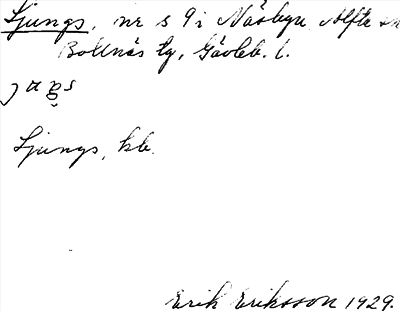 Ljungs, nr s 9 i Näsbyn Alfta sn
Bollnäs tg, Gävleb. l.
Ljungs, kb.
Erik Eriksson 1929.